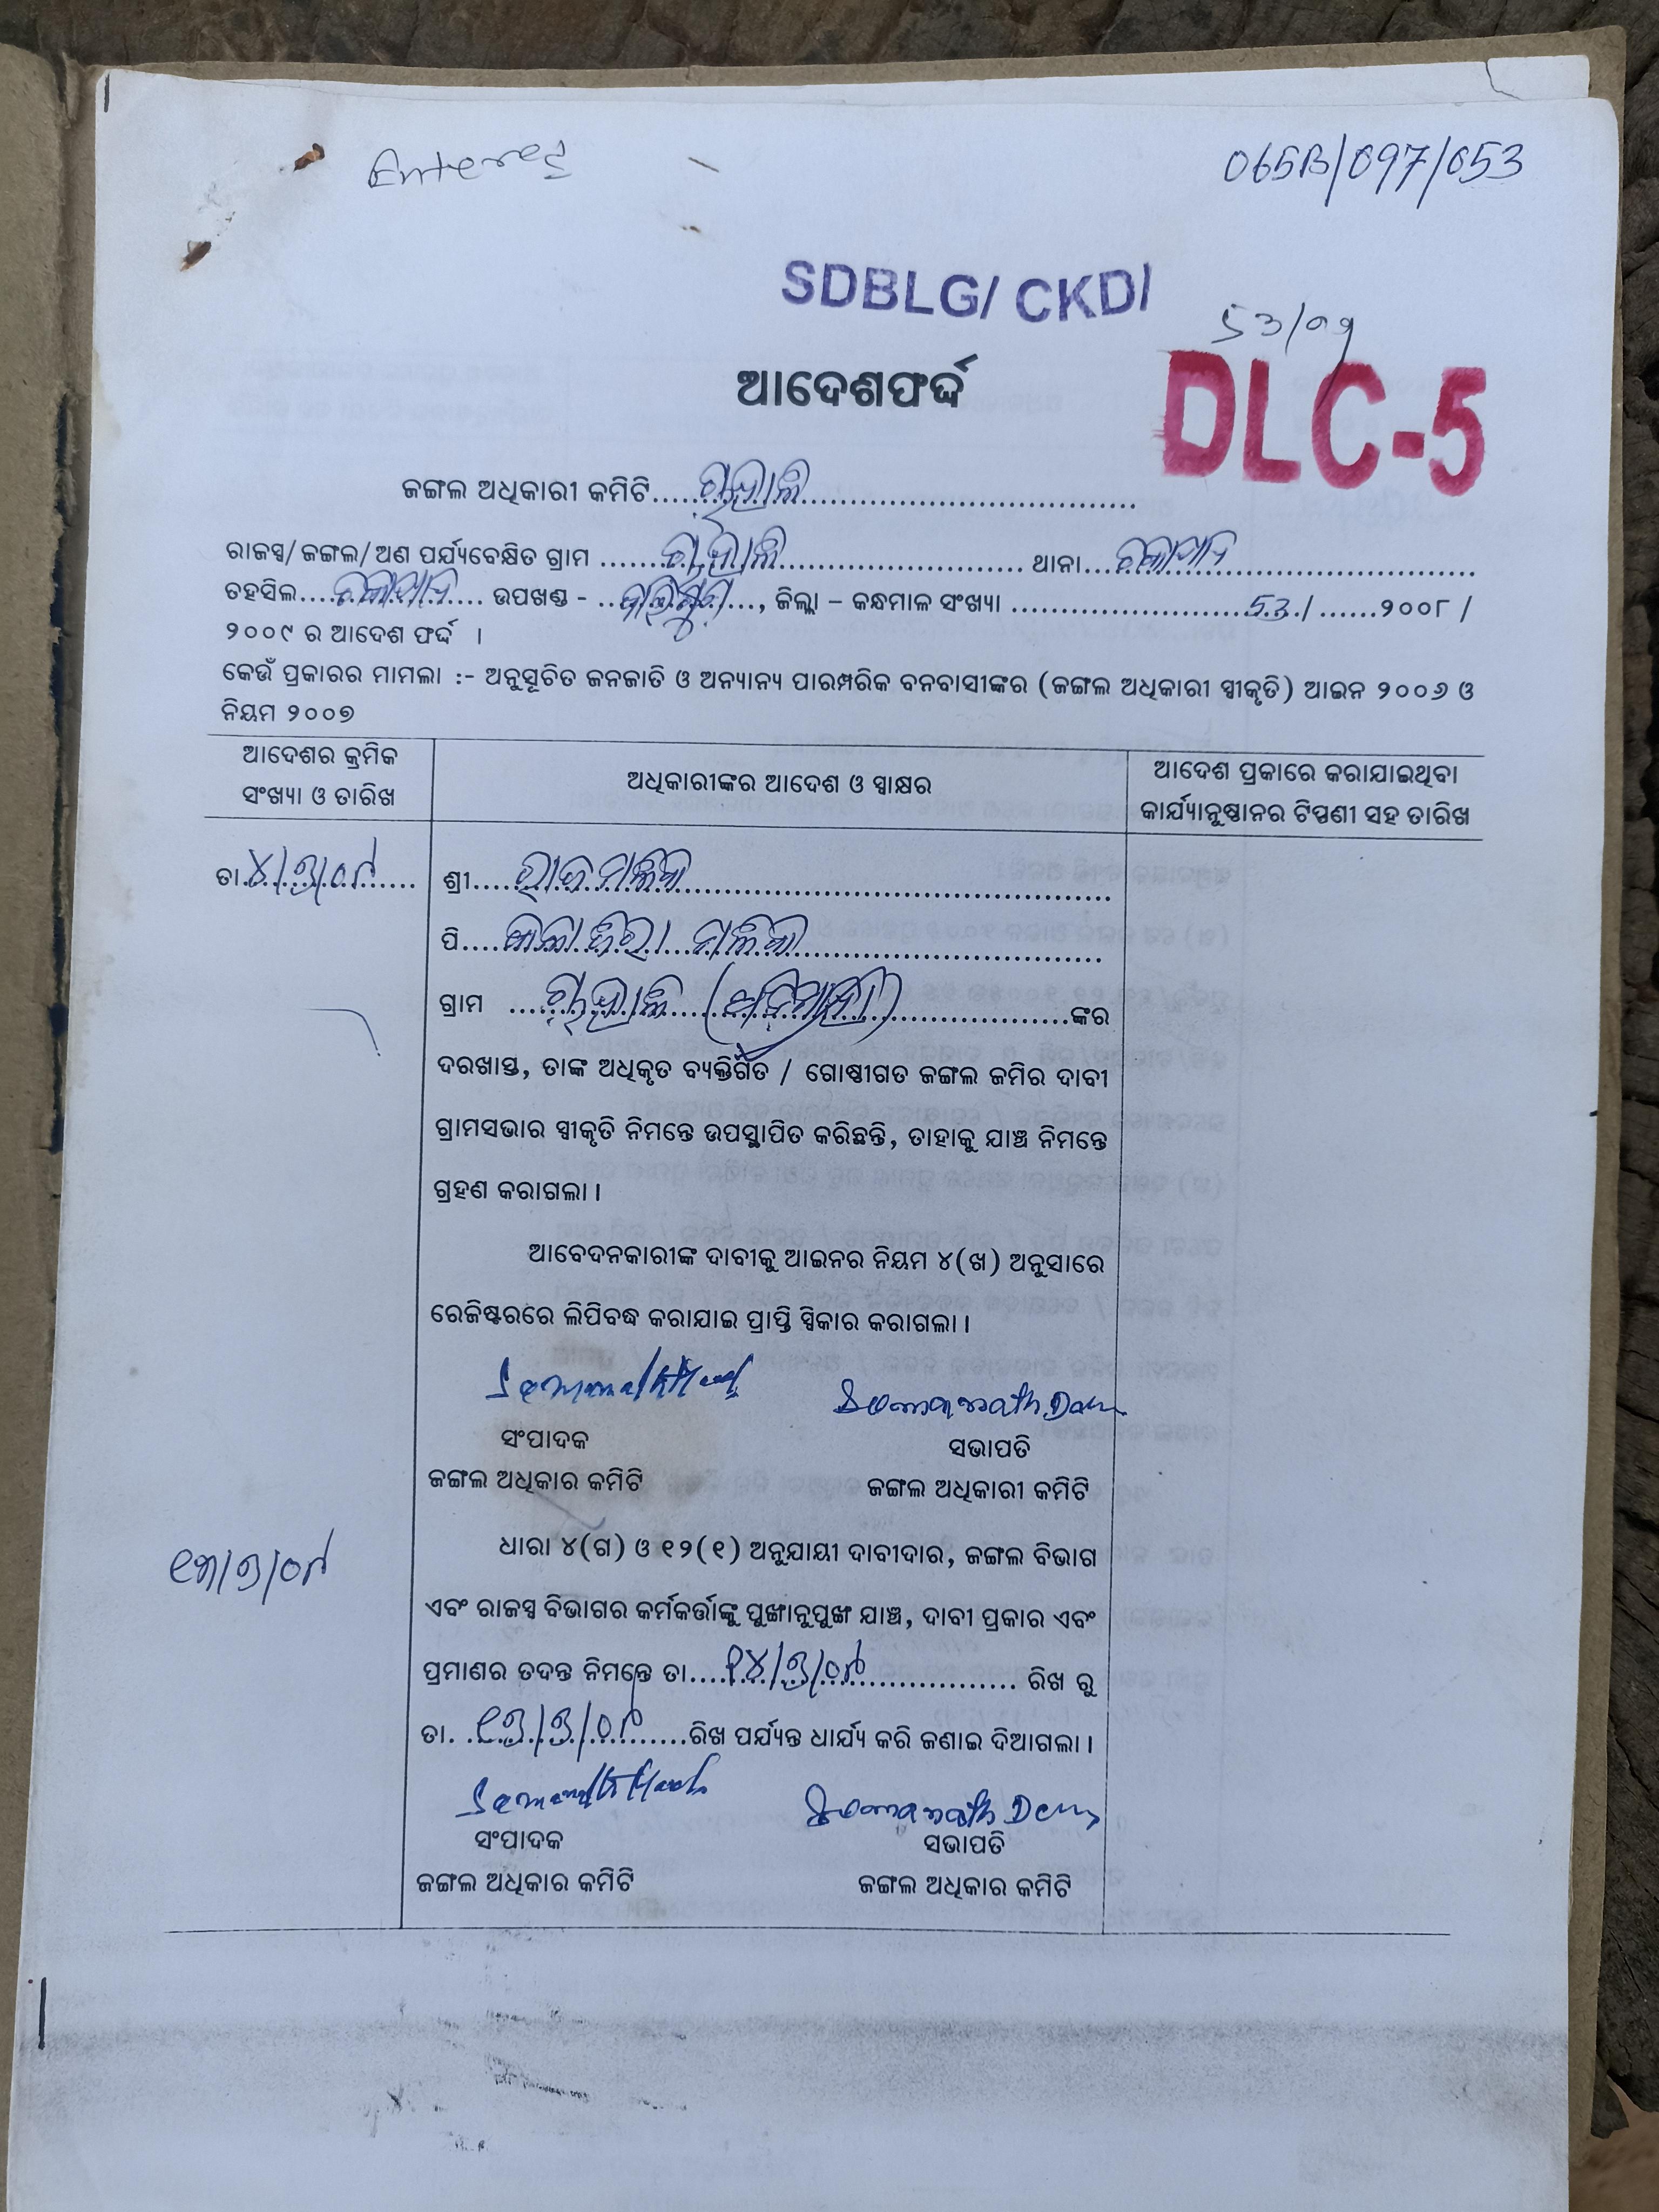 Entered
065B/097/053
SDBLG/ CKD/
53/09
DLC-5
ଆଦେଶଫର୍ଦ୍ଦ
ଜଙ୍ଗଲ ଅଧିକାରୀ କମିଟି
ରାଜସ୍ୱ/ଜଙ୍ଗଲ/ଅଣ ପର୍ଯ୍ୟବେକ୍ଷିତ ଗ୍ରାମ ଥାନା ଚକାପାଦ
ତହସିଲ ଚକାପାଦ ଉପଖଣ୍ଡ - ବାଲିଗୁଡ଼ା, ଜିଲ୍ଲା – କନ୍ଧମାଳ ସଂଖ୍ୟା 53 / ୨୦୦୮ /
୨୦୦୯ ର ଆଦେଶ ଫର୍ଦ୍ଦ ।
କେଉଁ ପ୍ରକାରର ମାମଲା :- ଅନୁସୂଚିତ ଜନଜାତି ଓ ଅନ୍ୟାନ୍ୟ ପାରମ୍ପରିକ ବନବାସୀଙ୍କର (ଜଙ୍ଗଲ ଅଧିକାରୀ ସ୍ୱୀକୃତି) ଆଇନ ୨୦୦୬ ଓ
ନିୟମ ୨୦୦୭
ଆଦେଶର କ୍ରମିକ
ସଂଖ୍ୟା ଓ ତାରିଖ
ଅଧିକାରୀଙ୍କର ଆଦେଶ ଓ ସ୍ୱାକ୍ଷର
ଆଦେଶ ପ୍ରକାରେ କରାଯାଇଥିବା
କାର୍ଯ୍ୟାନୁଷ୍ଠାନର ଟିପ୍ପଣୀ ସହ ତାରିଖ
ତା ୪/୬/୦୯
ଶ୍ରୀ ମଲ୍ଲିକ
ପି ମଲ୍ଲିକ
ଗ୍ରାମ ଙ୍କର
ଦରଖାସ୍ତ, ତାଙ୍କ ଅଧିକୃତ ବ୍ୟକ୍ତିଗତ / ଗୋଷ୍ଠୀଗତ ଜଙ୍ଗଲ ଜମିର ଦାବୀ
ଗ୍ରାମସଭାର ସ୍ୱୀକୃତି ନିମନ୍ତେ ଉପସ୍ଥାପିତ କରିଛନ୍ତି, ତାହାକୁ ଯାଞ୍ଚ ନିମନ୍ତେ
ଗ୍ରହଣ କରାଗଲା ।
ଆବେଦନକାରୀଙ୍କ ଦାବୀକୁ ଆଇନର ନିୟମ ୪(ଖ) ଅନୁସାରେ
ରେଜିଷ୍ଟରରେ ଲିପିବଦ୍ଧ କରାଯାଇ ପ୍ରାପ୍ତି ସ୍ୱିକାର କରାଗଲା ।
Somanath Dan
ସଂପାଦକ
ସଭାପତି
ଜଙ୍ଗଲ ଅଧିକାର କମିଟି
ଜଙ୍ଗଲ ଅଧିକାରୀ କମିଟି
ଧାରା ୪(ଗ) ଓ ୧୨(୧) ଅନୁଯାୟୀ ଦାବୀଦାର, ଜଙ୍ଗଲ ବିଭାଗ
ଏବଂ ରାଜସ୍ୱ ବିଭାଗର କର୍ମକର୍ତ୍ତାଙ୍କୁ ପୁଙ୍ଖାନୁପୁଙ୍ଖ ଯାଞ୍ଚ, ଦାବୀ ପ୍ରକାର ଏବଂ
ପ୍ରମାଣର ତଦନ୍ତ ନିମନ୍ତେ ତା ରିଖ ରୁ
ତା ରିଖ ପର୍ଯ୍ୟନ୍ତ ଧାର୍ଯ୍ୟ କରି ଜଣାଇ ଦିଆଗଲା ।
Somanath Dan
ସଂପାଦକ
ସଭାପତି
ଜଙ୍ଗଲ ଅଧିକାର କମିଟି
ଜଙ୍ଗଲ ଅଧିକାର କମିଟି